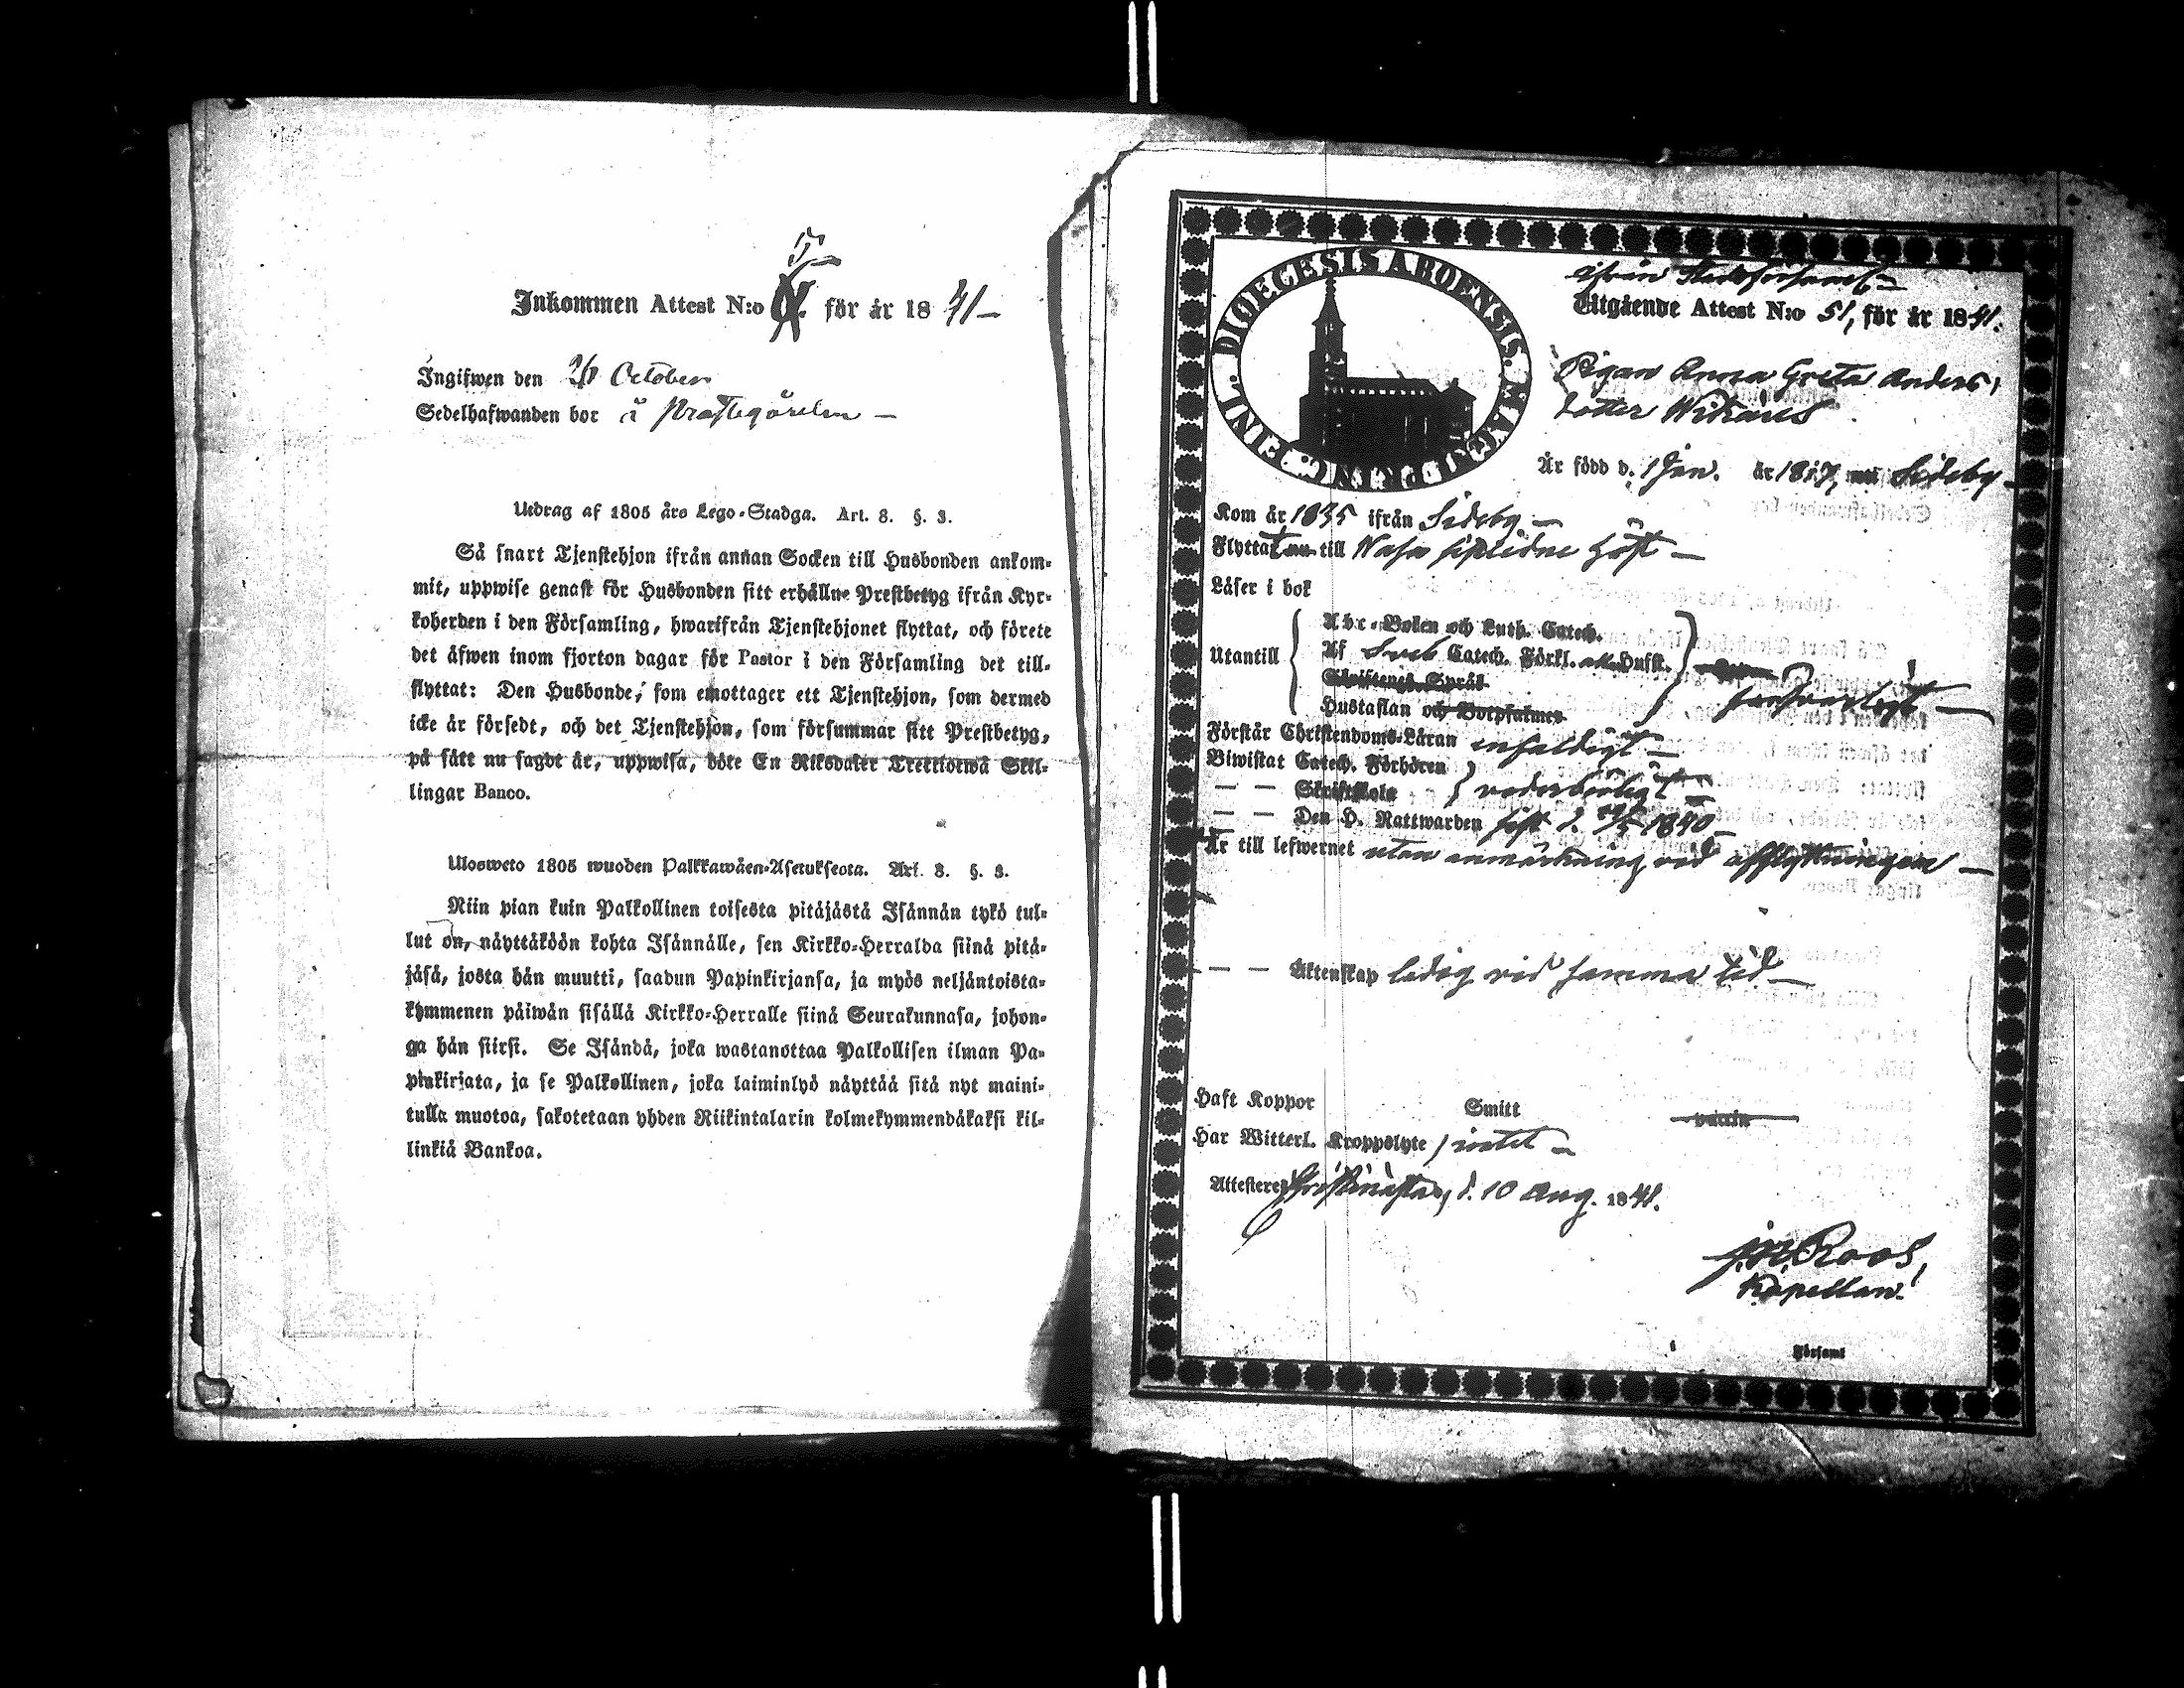 5
Inkommen Attest N:o för år 1841
Ingifwen den 26 October
Sedelhafwanden bor i Prästegården
Utdrag af 1805 års Lego-Stadga. Art. 8. §. 3.
Så snart Tjenstehjon ifrån annan Socken till Husbonden ankom-
mit, uppwise genast för Husbonden sitt erhållne Prestbetyg ifrån Kyr-
koherden i den Församling, hwarifrån Tjenstehjonet flyttat, och förete
det äfwen inom fjorton dagar för Pastor i den Församling det till-
flyttat: Den Husbonde, som emottager ett Tjenstehjon, som dermed
icke är försedt, och det Tjenstehjon, som försummar sitt Prestbetyg,
på sätt nu sagdt är, uppwisa, böte En Riksdaler Trettiotwå Skil-
lingar Banco.
Ulosweto 1805 wuoden Palkkawäen-Asetuksesta. Art. 8. §. 3.
Niin pian kuin Palkollinen toisesta pitäjästä Isännän tykö tul-
lut on, näyttäköön kohta Isännälle, sen Kirkko-Herralda siinä pitä-
jäsä, josta hän muutti, saadun Papinkirjansa, ja myös neljäntoista-
kymmenen päiwän sisällä Kirkko-Herralle siinä Seurakunnasa, johon-
ga hän siirsi. Se Isändä, joka wastanottaa Palkollisen ilman Pa-
pinkirjata, ja se Palkollinen, joka laiminlyö näyttää sitä nyt maini-
tulla muotoa, sakotetaan yhden Riikintalarin kolmekymmendäkaksi kil-
linkiä Bankoa.
DIOECESIS ABOENSIS.
ifrån Stadsförsaml
Utgående Attest N:o 51, för år 1841.
Pigan Anna Greta Anders,
dotter
Är född d. 1 Jan. år 1817, Sideby
Kom år 1835 ifrån Sideby
Flyttat till Wasa sistledne höst
Läser i bok
Utantill
Abc-Boken och Luth. Catech.
Af Sveb Catech. Förkl. Husst.
Skriftenes Språk
Hustaflan och Botpsalmer
försvarligt
Förstår Christendoms-Läran enfaldigt
Biwistat Catech. Förhören
— — Skriftskola vederbörligt
— — Den H. Nattwarden sist d. 1840
Är till lefwernet utan anmärkning vid afflyttningen
— — Äktenskap ledig vid samma tid
Haft Koppor Smitt vaccin
Har Witterl. Kroppslyte intet
Attesterer Christinestad, d. 10 Aug. 1841.
Roos,
Kapellan.
i Församl